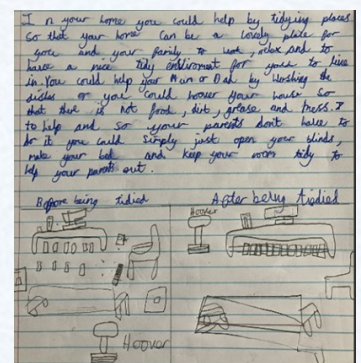 In your home you could help by tidying places
so that your home can be a lovely place for
you and your family to work, relax and to
have a nice tidy enviroment for you to live
in. You could help your Mum or Dad by washing the
dishes or you could hoover your house so
that there is not food, dirt, grease and mess.
to help and so your parents don't have to
do it you could simply just open your blinds,
make your bed and keep your room tidy to
help your parents out.
Before being tidied
After being tiodied
Hoover
Hoover